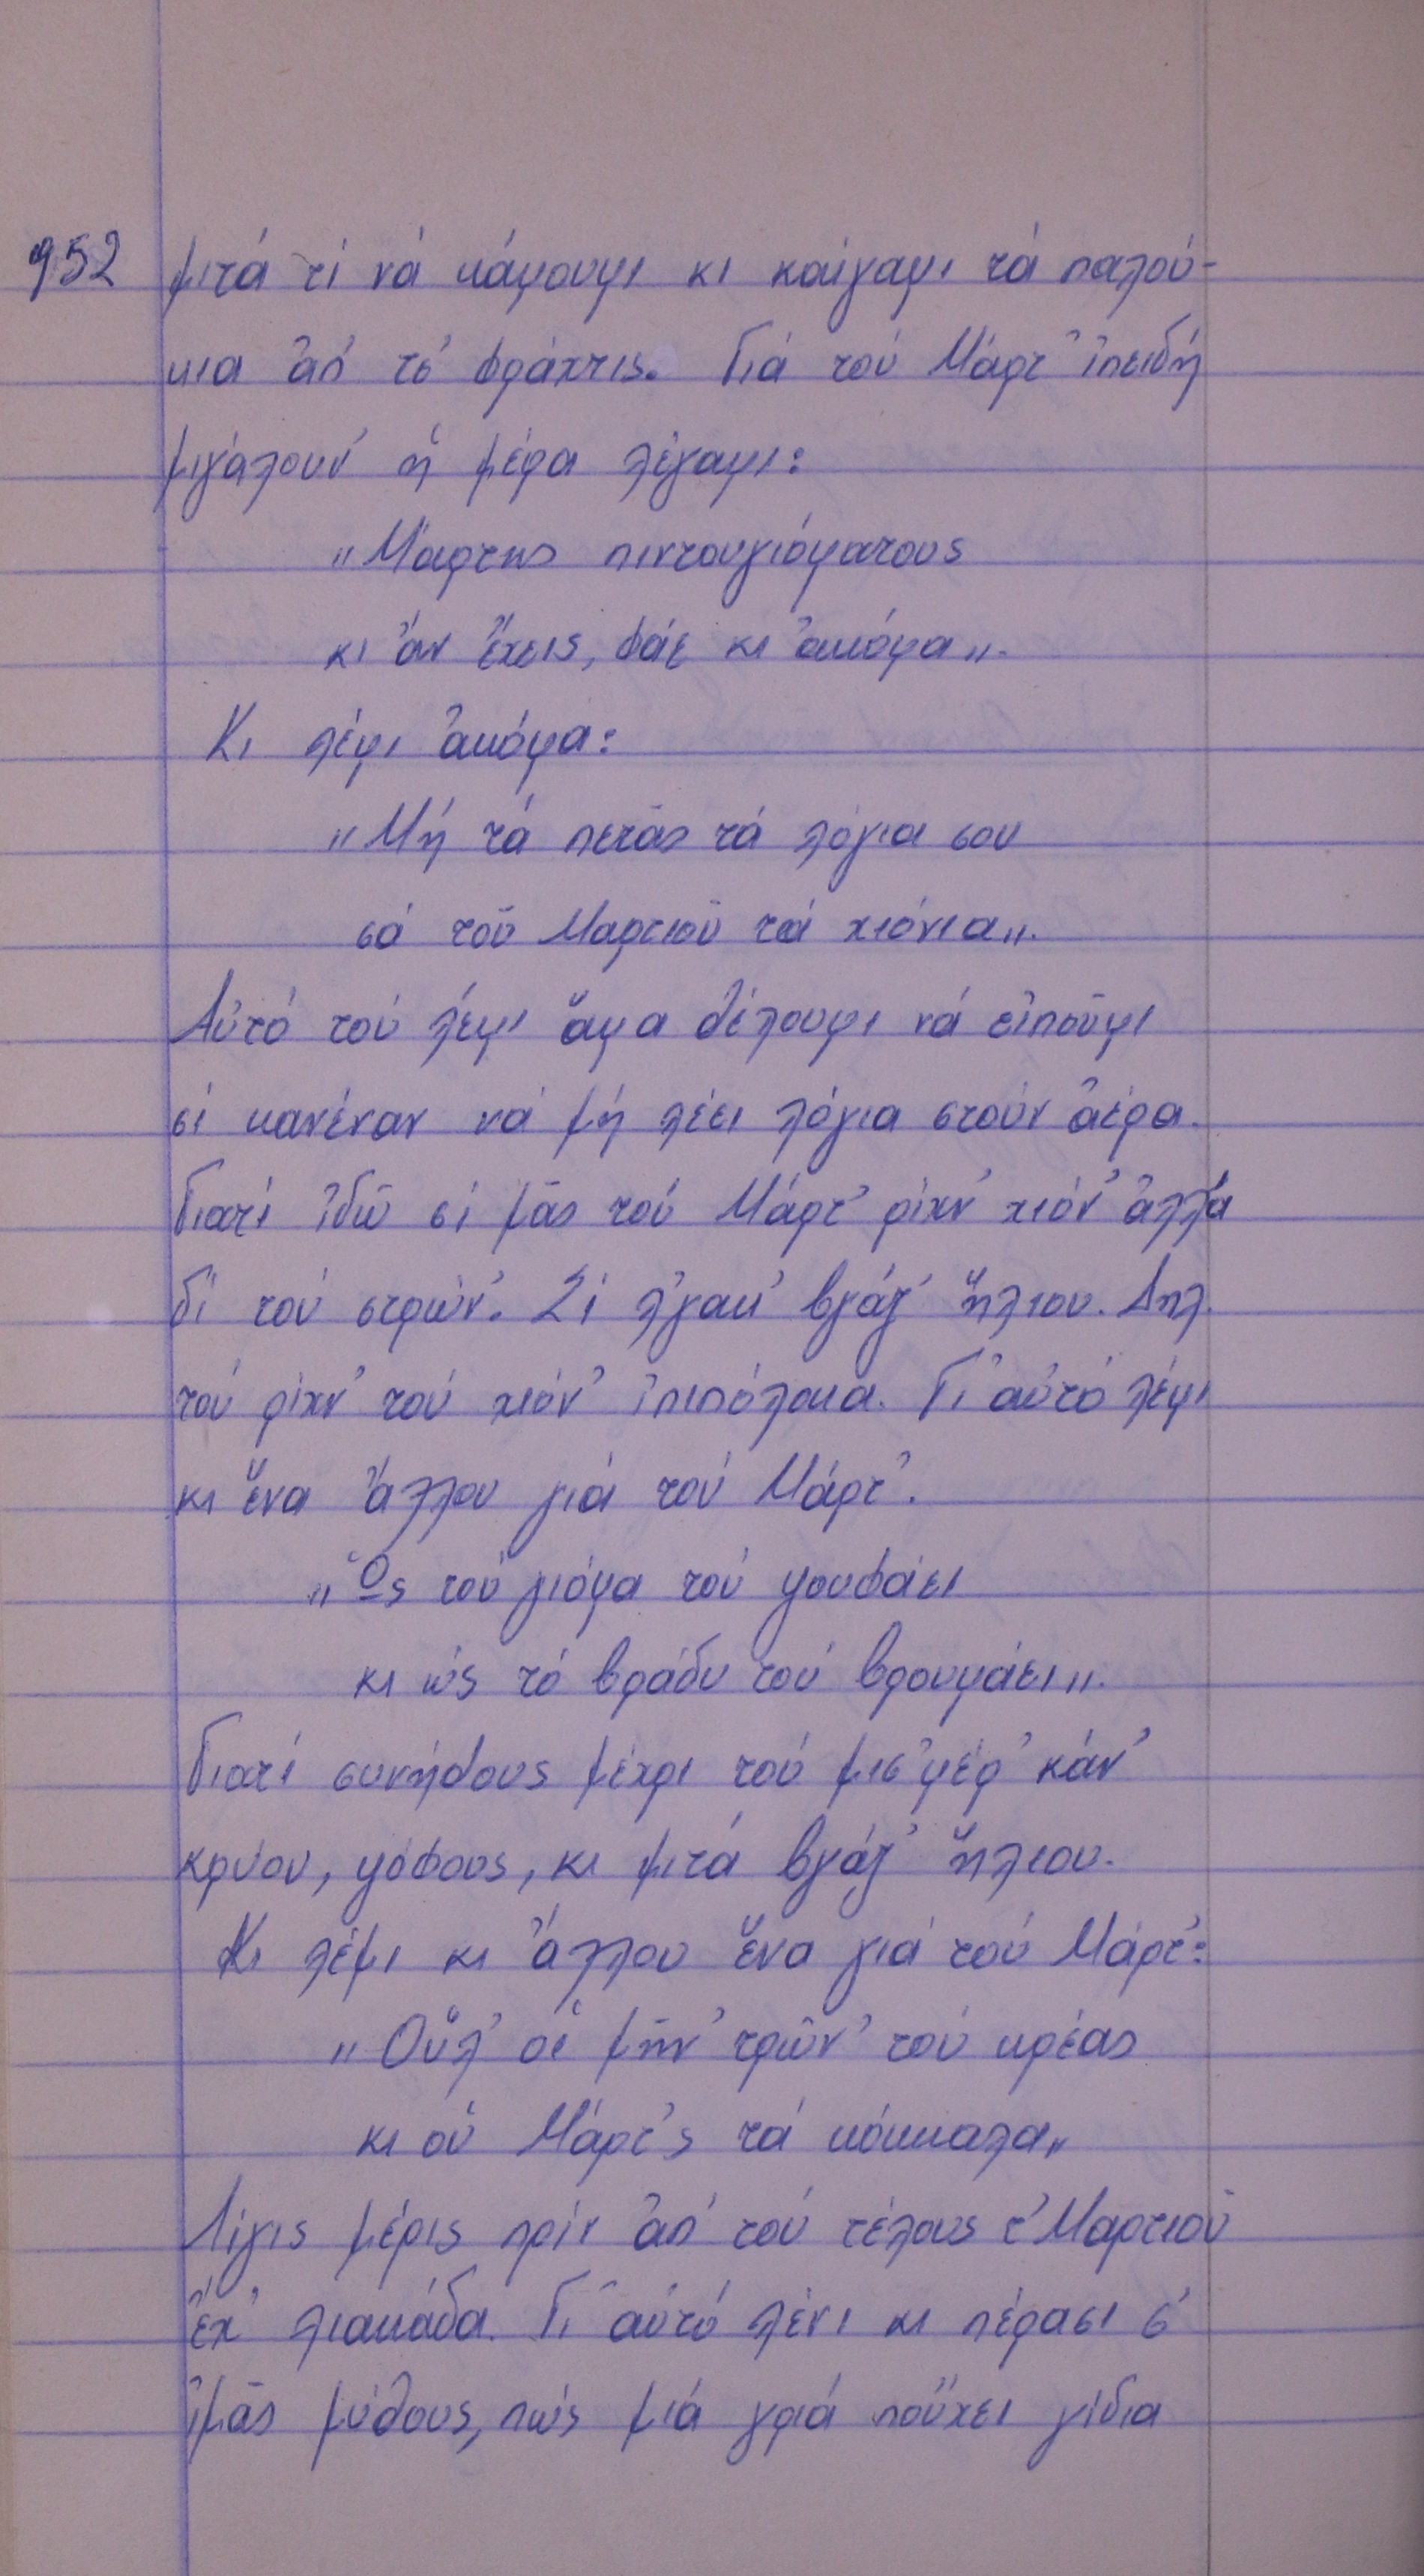 952
μιτά τί νά κάμουμι κι καίγαμι τά παλού-
κια ἀπ' τ'ς φράχτις. Γιά τού Μάρτ' ἰπειδή
μιγάλουν' ἡ μέρα λέγαμι:
„Μάρτης πιντουγιόματους
κι ἄν ἔχεις, φάε κι ἀκόμα„.
Κι λέμι ἀκόμα:
„Μή τά πετᾶς τά λόγια σου
σά τοῦ Μαρτιοῦ τά χιόνια„.
Αὐτό τού λέμι ἅμα θέλουμι νά εἰποῦμι
σί κανέναν νά μή λέει λόγια στούν ἀέρα.
Γιατί ἰδῶ σί μᾶς τού Μάρτ' ρίχν' χιόν' ἀλλά
δί τού στρών'. Σί λ'γακ' βγάζ' ἥλιου. Δηλ.
τού ρίχν' τού χιόν' ἰπιπόλαια. Γι αὐτό λέμι
κι ἕνα ἄλλου γιά τού Μάρτ'.
„Ὥς τού γιόμα τού ψουφάει
κι ὥς τό βράδυ τού βρουμάει„.
Γιατί συνήθους μέχρι τού μισ'μέρ' κάν'
κρύου, ψόφους, κι μιτά βγάζ' ἥλιου.
Κι λέμι κι ἄλλου ἕνα γιά τού Μάρτ':
„Οὕλ' οἱ μῆν' τρῶν' τού κρέας
κι οὑ Μάρτ'ς τά κόκκαλα„
Λίγις μέρις πρίν ἀπ' τού τέλους τ' Μαρτιοῦ
ἔχ' λιακάδα. Γι αὐτό λένι κι πέρασι σ'
ἰμᾶς μύθους, πώς μιά γριά πούχει γίδια